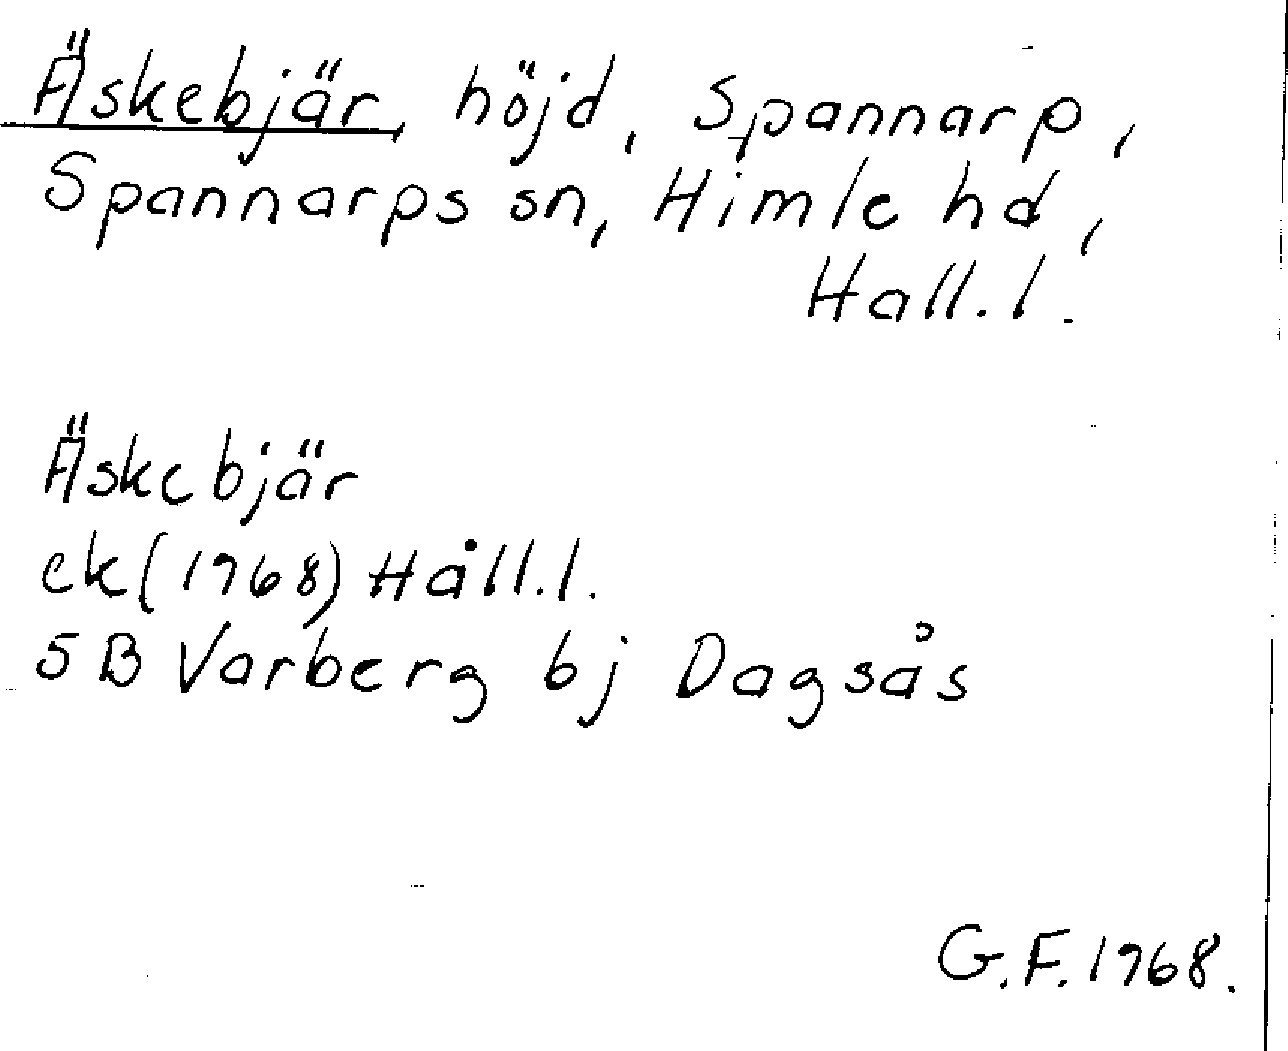 Äskebjär, höjd, Spannarp,
Spannarps sn, Himle hd,
Hall. l.
Äskebjär
ek (1968) Hall. l.
5B Varberg bj Dagsås
G.F. 1968.